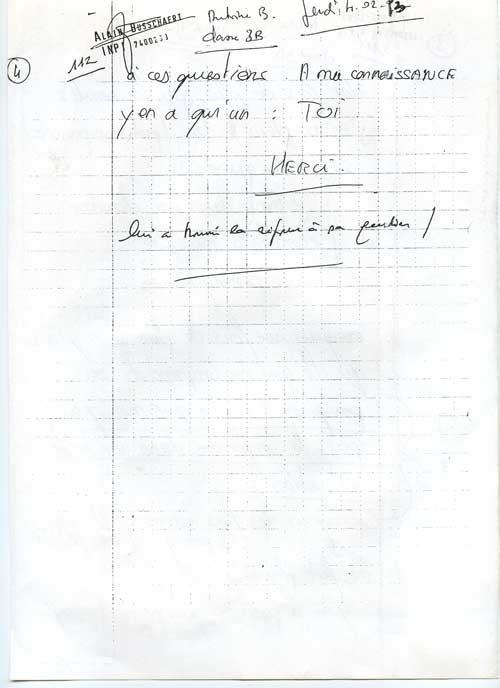 ALAIN BUSSCHAERT
INPI 7400531
Antoine B.
classe 3B
Jeudi, 4. 02.
④
112
à ces questions. A ma connaissance
y en a qu'un : TOI
MERCI.
lui a trouvé la réponse à sa question /